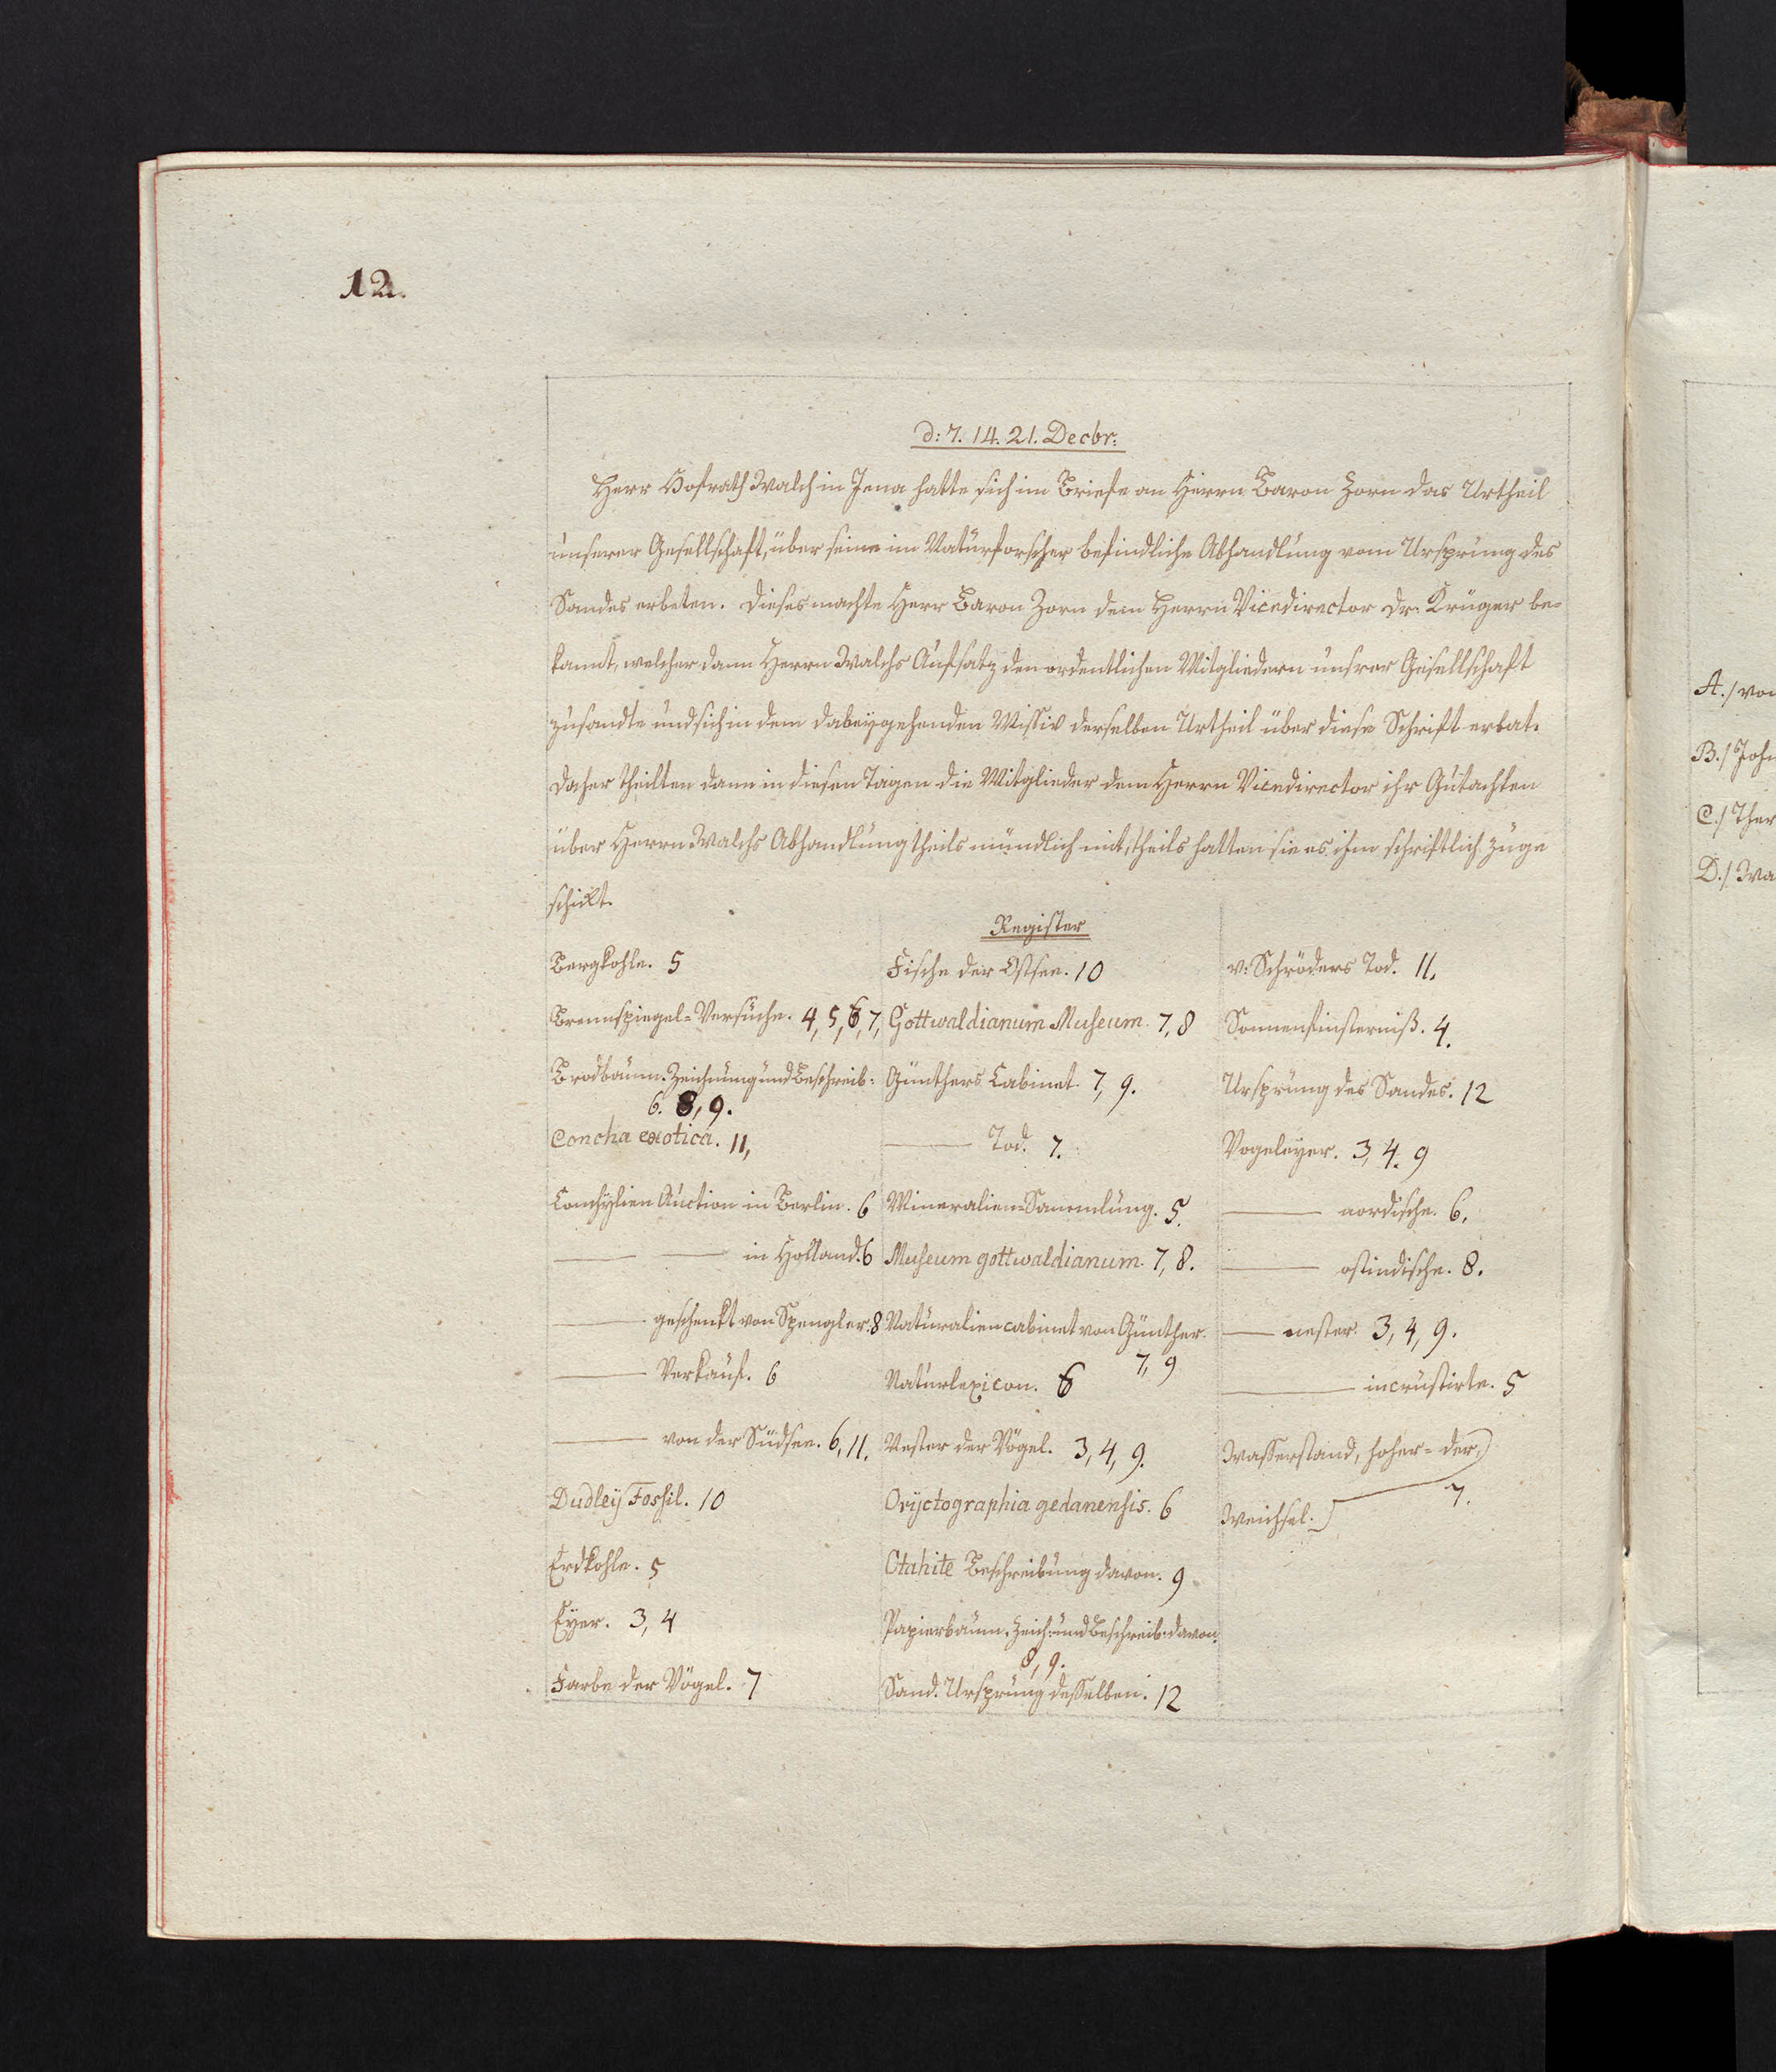 12.
d: 7. 14. 21. Decbr:
Herr Hofrath Walch in Jena hatte sich im Briefe an Herrn Baron Zorn das Urtheil
unserer Gesellschaft, über seine im Naturforscher befindliche Abhandlung vom Ursprung des
Sandes erbeten. Dieses machte Herr Baron Zorn dem Herrn Vicedirector Dr. Krüger be-
kannt, welcher dann Herrn Walchs Aufsatz den ordentlichen Mitgliedern unsrer Gesellschaft
zusandte und sich in dem dabeygehenden Missiv derselben Urtheil über diese Schrift erbat.
Daher theilten dann in diesen Tagen die Mitglieder dem Herrn Vicedirector ihr Gutachten
über Herrn Walchs Abhandlung theils mündlich mit, theils hatten sie es ihm schriftlich zuge
schickt.
Register
Bergkohle. 5
Brennspiegel-Versuche. 4, 5, 6, 7,
Brodbaum. Zeichnung und Beschreib:
6. 8, 9.
Concha exotica. 11,
Conchylien Auction in Berlin. 6
— — in Holland. 6
— geschenkt von Spengler. 8
— Verkauf. 6
— von der Südsee. 6, 11.
Dudley Fossil. 10
Erdkohle. 5
Eyer. 3, 4
Farbe der Vögel. 7
Fische der Ostsee. 10
Gottwaldianum Museum. 7, 8
Günthers Cabinet. 7, 9.
— Tod. 7.
Mineralien-Sammlung. 5.
Museum gottwaldianum. 7, 8.
Naturaliencabinet von Günther.
7, 9
Naturlexicon. 6
Nester der Vögel. 3, 4, 9.
Oryctographia gedanensis. 6
Otahite Beschreibung davon. 9
Papierbaum. Zeich: und Beschreib: davon.
8, 9.
Sand. Ursprung desselben. 12
v. Schröders Tod. 11.
Sonnenfinsterniß. 4.
Ursprung des Sandes. 12
Vogeleyer. 3, 4. 9
— nordische. 6.
— ostindische. 8.
— nester. 3, 4, 9.
— incrustirte. 5
Wasserstand, hoher - der
Weichsel. 7.
A./ von
B./ Joh
C./ Ther
D./ Wa